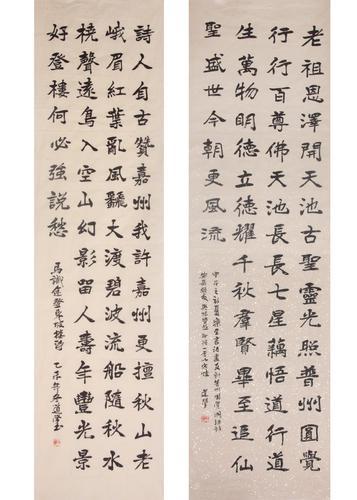 老祖恩澤開天池古聖靈光照普州圓覺
行行百尊佛天池長長七星藕悟道行道
生萬物明德立德耀千秋群賢畢至追仙
聖盛世今朝更風流
詩人自古贊嘉州我許嘉州更擅秋山老
峨眉紅葉亂風飄大渡碧波流船隨秋水
橈聲遠鳥入空山幻影留人壽年豐光景
好登樓何必強說愁
馬識途登東坡樓詩
乙未年冬